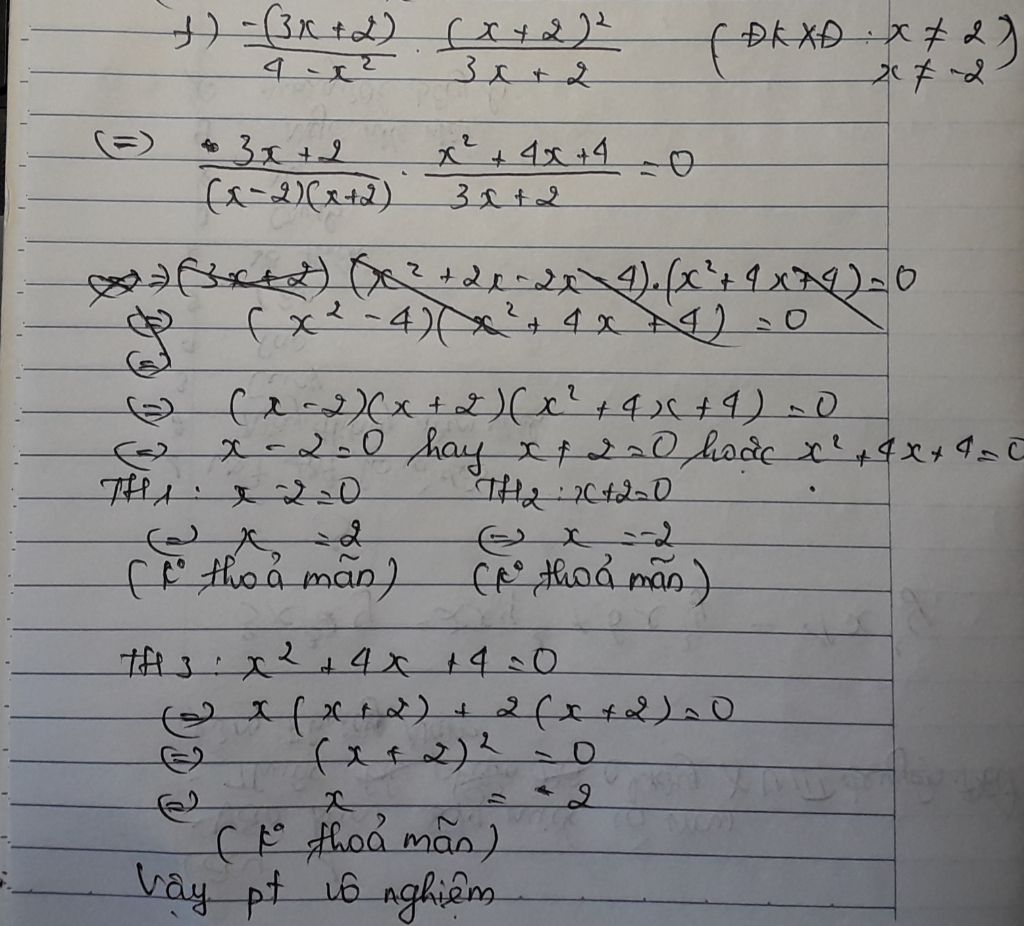 f) -(3x+2)/(4-x²) . (x+2)²/(3x+2) (ĐKXĐ: x ≠ 2
x ≠ -2)
(=) (3x+2)/((x-2)(x+2)) . (x²+4x+4)/(3x+2) = 0
=> (3x+2) (x²+2x-2x-4).(x²+4x+4)=0
(=) (x²-4)(x²+4x+4) = 0
(=)
(=) (x-2)(x+2)(x²+4x+4) = 0
(=) x-2=0 hay x+2=0 hoặc x²+4x+4=0
TH1: x-2=0 TH2: x+2=0
(=) x = 2 (=) x = -2
(k° thoả mãn) (k° thoả mãn)
TH3: x²+4x+4=0
(=) x(x+2)+2(x+2)=0
(=) (x+2)² = 0
(=) x = -2
(k° thoả mãn)
Vậy pt vô nghiệm